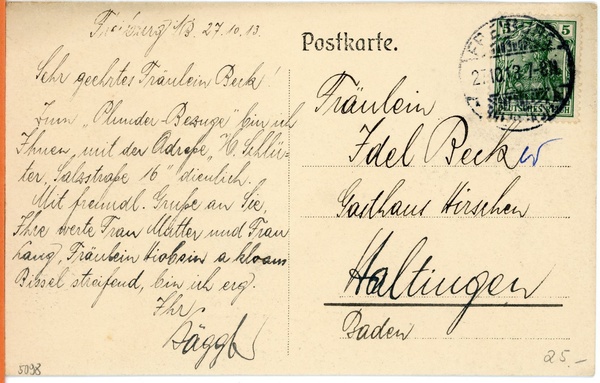 Freiburg i/B. 27.10.13.
Sehr geehrtes Fräulein Beck!
Zum „Plunder-Bezuge" bin ich
Ihnen mit der Adreße „H. Schlü-
ter, Salzstraße 16" dienlich.
Mit freundl. Gruße an Sie,
Ihre werte Frau Mutter und Frau
Lang, Fräulein a kloans
Bissel streifend, bin ich erg.
Ihr
Postkarte.
FREIBURG
27.10.13.7-8N
5
Fräulein
Idel Beck
Gasthaus Hirschen
Haltingen
Baden
5098
25.-